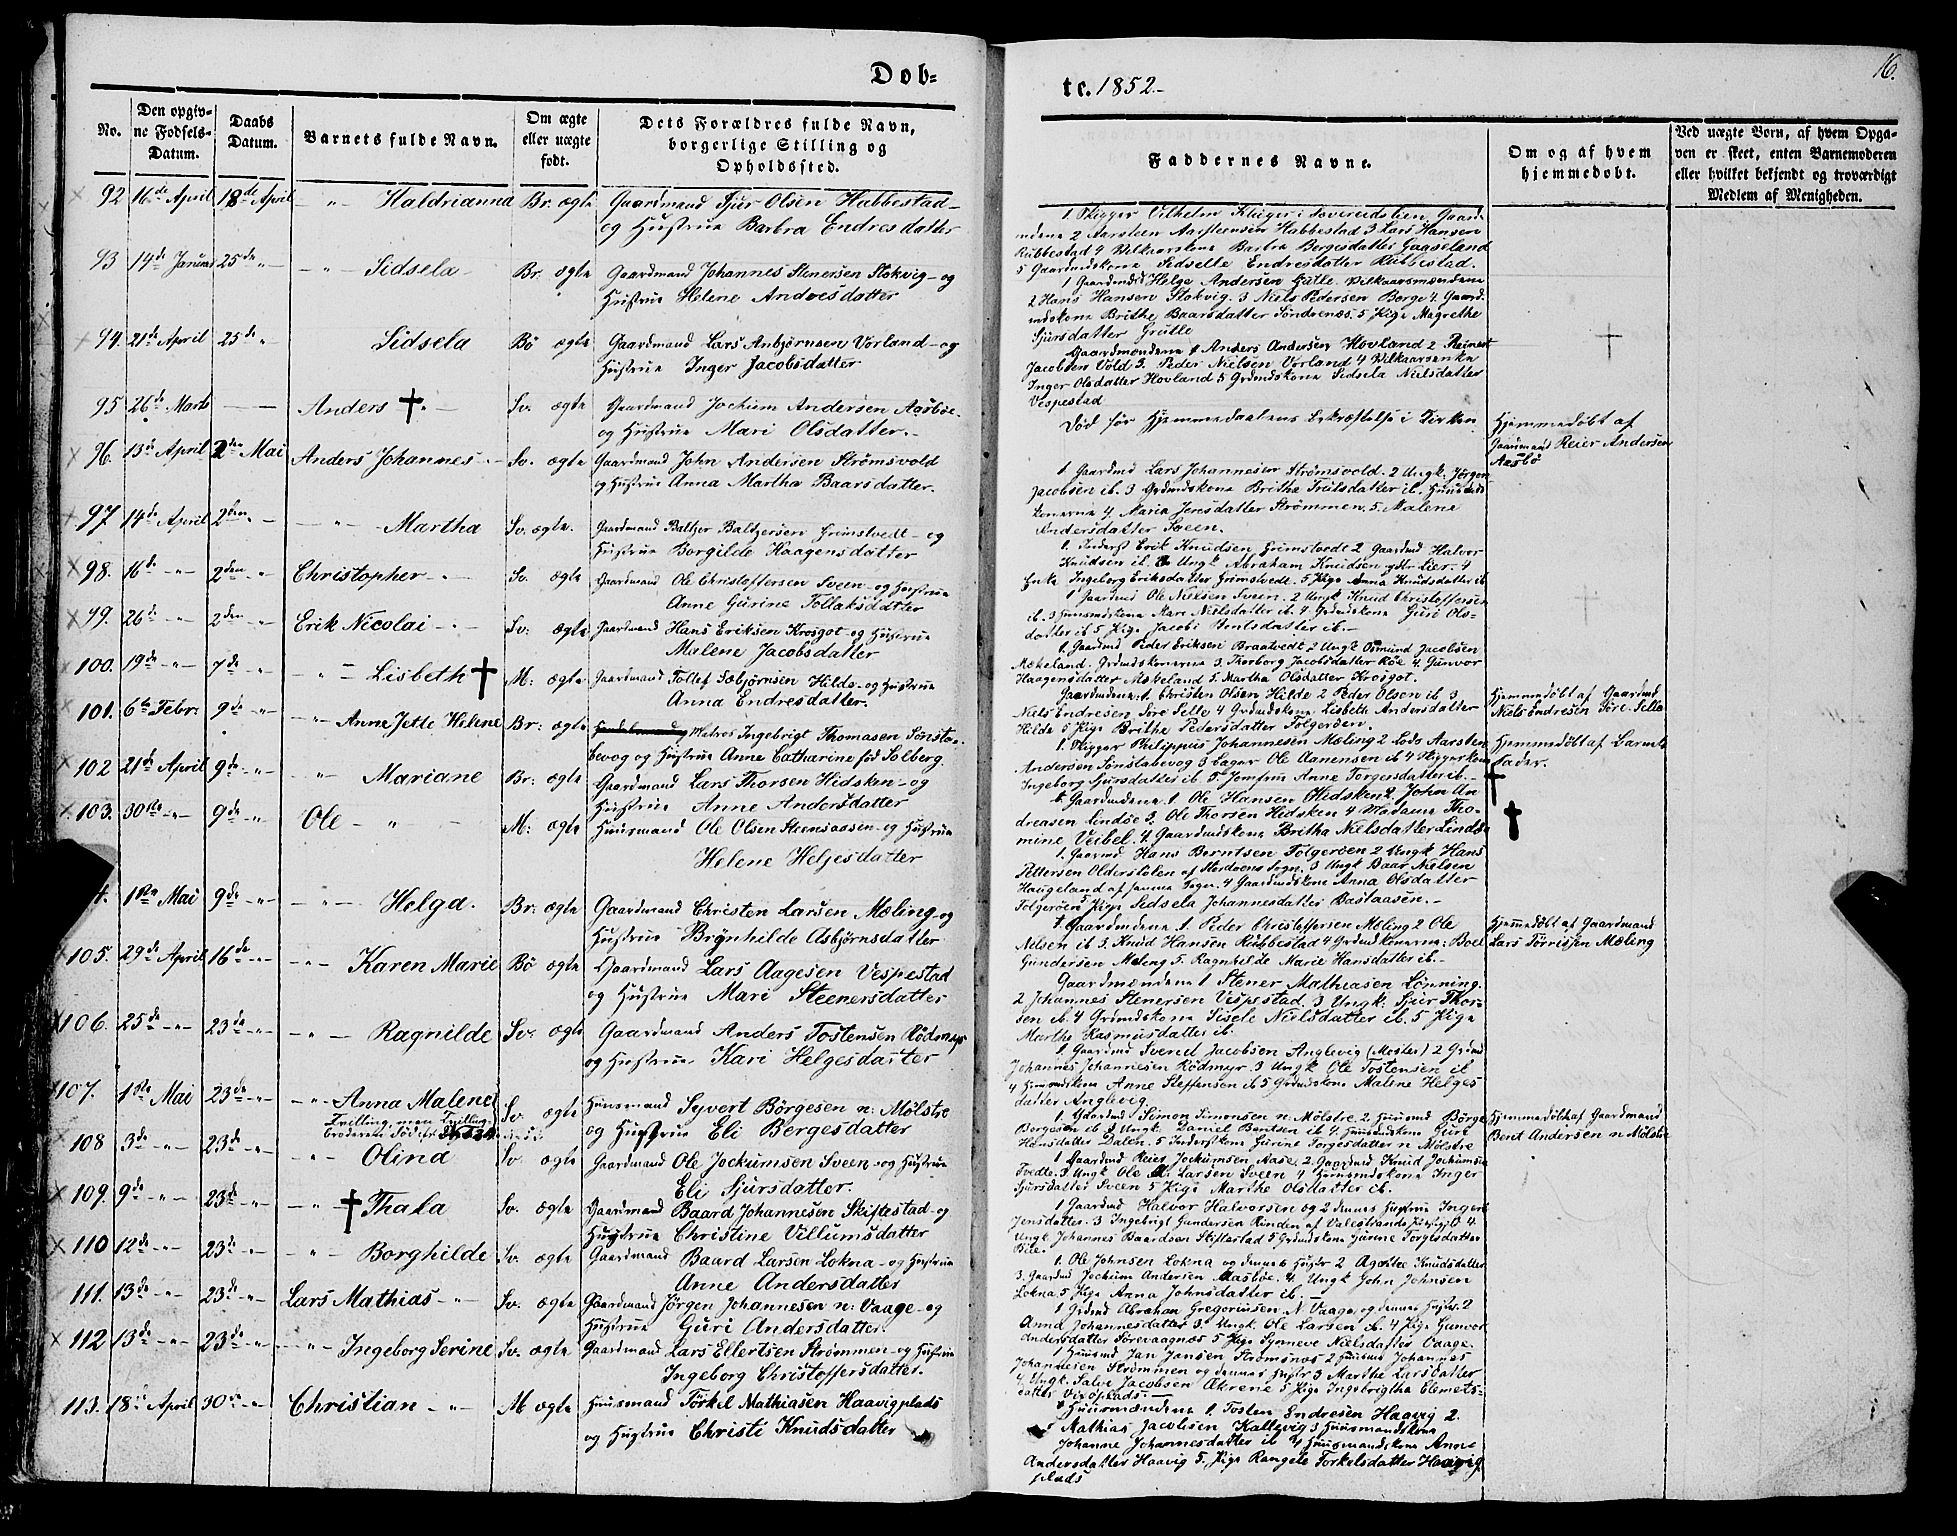 Dob=
No.
Den opgiv-
ne Fodsels-
Datum.
Daabs
Datum.
Barnets fulde Navn.
Om ægte
eller uægte
fodt.
Dets Forældres fulde Navn,
borgerlige Stilling og
Opholdssted.
92 16de April 18de April - " - Haldrianna Br. ægte Gaardmand Sjur Olsen Habbestad-
og Hustrue Barbra Endresdatter
93 14de Januar 25de " - - " - Sidsela Br. ægte Gaardmand Johannes Stenersen Stokvig - og
Hustrue Helene Andresdatter
94. 21de April 25de " Sidsela Bö ægte Gaardmand Lars Anbjørnsen Vorland - og
Hustrue Inger Jacobsdatter
95 26de Marts - - Anders † " - Sv. ægte Gaardmand Jochum Andersen Aasbøe.
og Hustrue Mari Olsdatter.-
96. 13de April 2den Mai Anders Johannes - Sv. ægte Gaardmand John Andersen Strømsvold
og Hustrue Anna Martha Baarsdatter.
97 14de April 2den " - - " - Martha Sv. ægte. Gaardmand Baltzer Baltzersen Grimstvedt - og
Hustrue Borgilde Haagensdatter
98. 16de - " - 2den " - Christopher - " - Sv. ægte Gaardmand Ole Christoffersen Sveen - og Hustrue
Anne Gurine Tollaksdatter
99. 26de - " - 2den - " - Erik Nicolai - " - Sv. ægte Gaardmand Hans Eriksen Krosgot - og Hustrue
Malene Jacobsdatter
100. 19de - " - 7de - " - " - Lisbeth † M. ægte Gaardmand Tollef Sæbjørnsen Hilde - og Hustrue
Anna Endresdatter.
101. 6te Febr: 9de - " - - " - Anna Jette Helene Br: ægte Matros Ingebrigt Thomasen Sønsta-
bevog og Hustrue Anne Catharine fød Solberg
102 21de April 9de - " - - " - Mariane Br: ægte Gaardmand Lars Thorsen Hidsken - og
Hustrue Anne Andersdatter
103. 30te - " - 9de - " - Ole - " - M: ægte Huusmand Ole Olsen Steensaasen - og Hustrue
Helene Heljesdatter
4. 1ste Mai 9de - " - - " - Helga. Br: ægte Gaardmand Christen Larsen Mæling - og
Hustrue Brynhilde Asbjørnsdatter
105. 29de April 16de - " - - " - Karen Marie Bö ægte Gaardmand Lars Aagesen Vespestad
og Hustrue Mari Steenersdatter
106. 25de - " - 23de - " - - " - Ragnilde Sv. ægte Gaardmand Anders Tostensen Rödmyr
og Hustrue Kari Helgesdatter
107. 1ste Mai 23de - " - - " - Anna Malene Sv. ægte Huusmand Syvert Börgesen n: Mølstre
Tvilling, men Tvilling-
og Hustrue Eli Bergesdatter
108 3de - " - 23de - " - - " - Olina Sv. ægte Gaardmand Ole Jockumsen Sveen - og Hustrue
Eli Sjursdatter.
109. 9de - " - 23de - " - - " - † Thala Sv. ægte Gaardmand Baard Johannesen Skiftestad - og
Hustrue Christine Villumsdatter
110 12de - " - 23de - " - - " - Borghilde Sv. ægte Gaardmand Baard Larsen Lokna - og Hustrue
Anne Andersdatter
111. 13de - " - 23de - " - Lars Mathias - " - Sv. ægte Gaardmand Jørgen Johannesen n: Vaage - og
Hustrue Guri Andersdatter.
112 13de - " - 23de - " - - " - Ingeborg Serine Sv. ægte Gaardmand Lars Ellertsen Strømmen - og Hustrue
Ingeborg Christoffersdatter.
113. 18de April 30te - " - Christian - " - M ægte Huusmand Törkel Mathiasen Haavigplads
og Hustrue Christi Knudsdatter
te. 1852.-
16.
Faddernes Navne.
Om og af hvem
hjemmedobt.
Ved uægte Born, af hvem Opga-
ven er skeet, enten Barnemoderen
eller hvilket bekjendt og troværdigt
Medlem af Menigheden.
1. Skipper Vilhelm Klüger i Sovereidslien, Gaard-
mændene 2 Aarsteen Aarsteensen Habbestad 3 Lars Hansen
Rubbestad 4 Vilkaarskone Barbra Borgesdatter Gaaseland
5 Gaardmdskone Sidselle Endresdatter Rubbestad.
1 Gaardmand Helge Andersen Hatle. Vilkaarsmændene
2 Hans Hansen Stokvig. 3 Niels Pedersen Borge 4. Gaard-
mdskone Brithe Baarsdatter Söndrenæs. 5 Pige Magrethe
Sjursdatter Grutle
Gaardmændene 1 Anders Andersen Hovland 2 Reinert
Jacobsen Vold 3. Peder Nielsen Vorland 4 Vilkaarsenke
Inger Olsdatter Hovland 5 Grdmdskone Sidsela Nielsdatter
Vespestad
Död før Hjemmedaabens bekræftelse i Kirken
Hjemmedøbt af
Gaardmand Reier Andersen
Aasbö
1. Gaardmd Lars Johannesen Strømsvold. 2 Ungk: Jörgen
Jacobsen ib. 3 Grdmdskone Britha Trulsdatter ib. Huusmds
konerne 4. Maria Jensdatter Strömmen. 5. Malene
Andersdatter Sveen.
1. Inderst Erik Knudsen Grimstvedt 2 Gaardmd Halvor
Knudsen ib. 3 Ungk Abraham Knudsen ytre Lier. 4
Enke Ingeborg Eriksdatter Grimstvedt. 5 Pige Anna Knudsdatter ib
1 Gaardmd Ole Nielsen Sveen. 2 Ungk Knud Christoffersen
ib. 3 Huusmdskone Mari Nielsdatter ib. 4. Grdmdskone Guri Ols-
datter ib 5 Pige Jacobi
1. Gaardmd Peder Eriksen Braatvedt 2 Ungk Osmund Jacobsen
Mækeland. Grdmdskonerne 3. Thorborg Jacobsdatter Röe 4. Gunvor
Haagensdatter Mækeland 5. Martha Olsdatter Krosgot.
Gaardmdene: 1. Christen Olsen Hilde 2 Peder Olsen ib 3
Niels Endresen Söre Selle 4 Grdmdskone Lisbeth Andersdatter
Hilde 5 Pige Brithe Pedersdatter Folgerøen.
Hjemmedöbt af Gaardmd
Niels Endresen Söre-Selle
1. Skipper Philippus Johannesen Mæling 2 Lods Aarsten
Andersen Sönstabevog 3 Bager Ole Aanensen ib 4 Skipperkone
Ingeborg Sjursdatter ib. 5. Jomfrue Anne Torgersdatter ib.-
Hjemmedöbt af Barnets
Fader.
Gaardmdene 1. Ole Hansen Hidsken 2. John An-
dreasen Lindöe 3. Ole Thorsen Hidsken 4 Madame Tho-
mine Veibel. 4. Gaardmdskone Britha Nielsdatter Lindöe
1. Gaardmd Hans Berntsen Folgerøen 2 Ungk Hans
Pettersen Olderstolen af Stordøens Sogn. 3 Ungk Baar Nielsen
Haugeland af samme Sogn. 4 Gaardmdskone Anna Olsdatter
Folgerøen 5 Pige Sidsela Johannesdatter Bastaasen.-
Gaardmdene. 1. Peder Christoffersen Mæling 2 Ole
Nilsen ib 3. Knud Hansen Rubbestad 4 Grdmdskonerne: Boel
Gundersen Mæling 5. Ragnhilde Marie Hansdatter ib.-
Hjemmedöbt af Gaardmand
Lars Törrisen Mæling
Gaardmændene 1 Stener Mathiasen Lönning.
2. Johannes Stenersen Vespestad. 3 Ungk. Sjur Thor-
sen ib. 4 Grdmdskone Sisele Nielsdatter ib. 5 Pige
Marthe Rasmusdatter ib.
1. Gaardmd Svend Jacobsen Anglevig (Møster) 2 Grdmd
Johannes Johannesen Rödmyr. 3 Ungk Ole Tostensen ib
4 Huusmdskone Anne Steffensen ib 5 Grdmdskone Malene Helges
datter Anglevig.
1. Gaardmd Simon Simonsen n. Mølstre. 2. Huusmd Börge
Borgesen ib 3 Ungk. Daniel Bentsen ib 4 Huusmdskone Guri
Hansdatter Dalen. 5 Inderstkone Gurine Torgesdatter n Mølstre
Hjemmedöbt af Gaardmand
Bent Andersen n Mölstre
1 Gaardmd Reier Jockumsen Aase. 2. Gaardmd Knud Jochumsen
Tvedte. 3 Ungk Ole Larsen Sveen 4 Huusmdskone Inger
Sjursdatter Sveen 5 Pige Marthe Olsdatter ib.
1 Gaardmd Halvor Halvorsen og 2 dennes Hustrue Inger
Jensdatter. 3 Ingebrigt Gundersen Rinden af Valestrands Præstgjld 4.
Ungk Johannes Baardsen Skiftestad 5 Grdmdskone Gurine Torgesdatter
1. Ole Johnsen Lokna og dennes Hustr 2 Agathe Knudsdatter
3. Gaardmd Jochum Andersen Aasböe. 4. Ungk John Johnsen
Lokna. 5 Pige Anna Johnsdatter ib.
1 Grdmd Abraham Gregoriusen N Vaage, og dennes Hustr. 2
Anna Johannesdatter 3. Ungk. Ole Larsen ib. 4 Pige Gunvor
Andersdatter Sörevaagnæs 5 Pige Synneve Nielsdatter Vaage.
1 Huusmd Jan Jansen Strömsnæs 2 Huusmd Johannes
Johannesen Strömmen og dennes Hustr 3 Marthe Larsdatter
4 Ungk. Salve Jacobsen Økrene 5 Pige Ingebrigtha Clemets-
datter
Huusmændene 1. Tosten Endresen Haavig 2.
Mathias Jacobsen Kallevig 3 Huusmandskone
Johanne Johannesdatter ib 4 Huusmandskone Anne
Andersdatter Haavig 5. Pige Rangele Torkelsdatter Haavig
plads